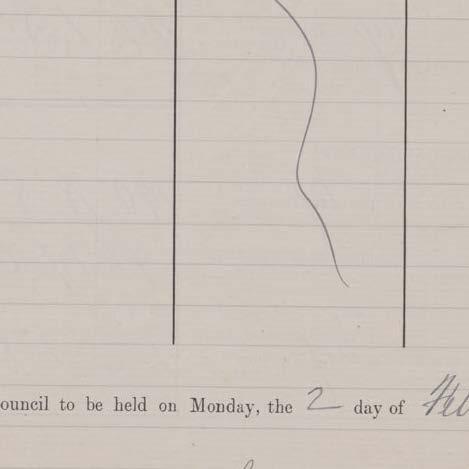 ouncil to be held on Monday, the 2 day of Feb